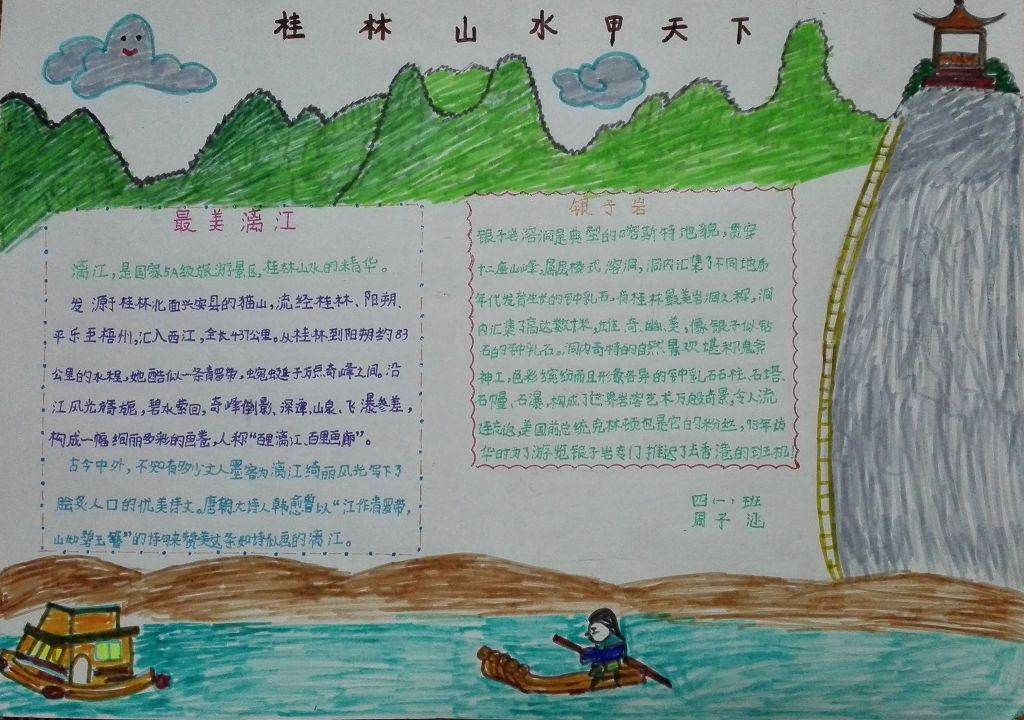 桂林山水甲天下
最美漓江
漓江,是国家5A级旅游景区,桂林山水的精华。
发源于桂林北面兴安县的猫山,流经桂林、阳朔、
平乐至梧州,汇入西江,全长437公里。从桂林到阳朔约83
公里的水程,她酷似一条青罗带,蜿蜒于万点奇峰之间。沿
江风光旖旎,碧水萦回,奇峰倒影、深潭、山泉、飞瀑参差,
构成一幅绚丽多彩的画卷,人称“百里漓江、百里画廊”。
古今中外,不知有多少文人墨客为漓江绮丽风光写下了
脍炙人口的优美诗文。唐朝大诗人韩愈曾以“江作青罗带,
山如碧玉簪”的诗句来赞美这条如诗似画的漓江。
银子岩
银子岩溶洞是典型的喀斯特地貌,贯穿
十二座山峰,属层楼式溶洞,洞内汇集了不同地质
年代发育生长的钟乳石,有桂林最美岩洞之称,洞
内汇集了高达数十米,雄、奇、幽、美,像银子似钻
石的钟乳石。洞内奇特的自然景观堪称鬼斧
神工,色彩缤纷而且形象各异的钟乳石石柱、石塔、
石幔、石瀑,构成了世界岩溶艺术万般奇景,令人流
连忘返,美国前总统克林顿也是它的粉丝,98年访
华时为了游览银子岩专门推迟了去香港的班机!
四(一)班
周子涵